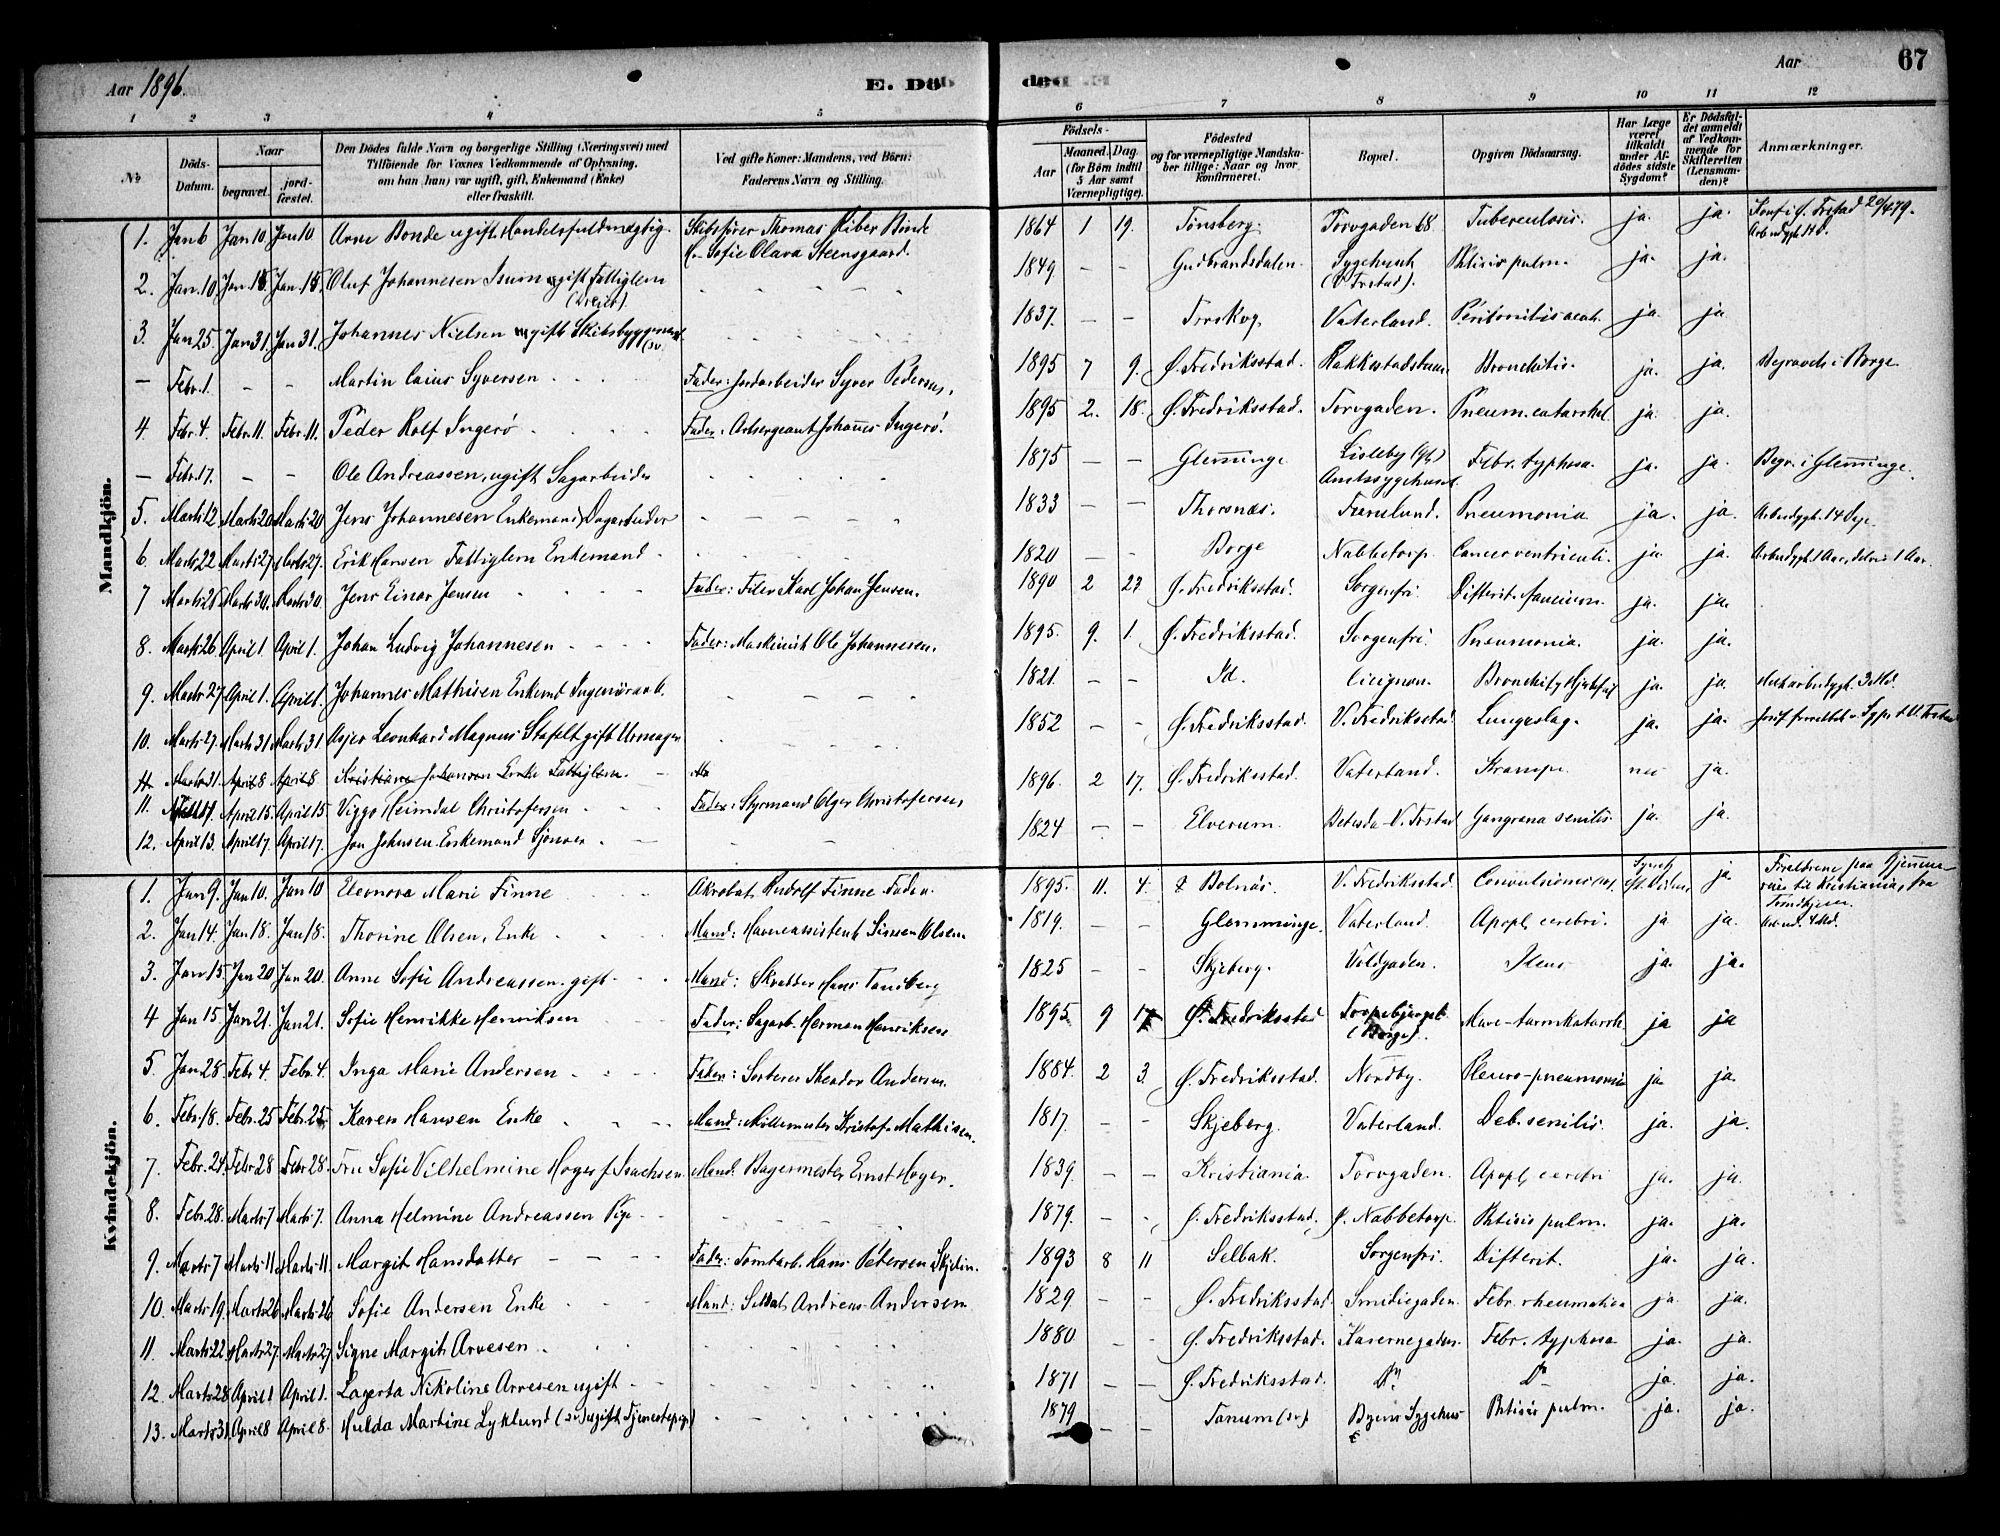 67
Aar 1896.
E. Dö
Aar
1 2 3 4 5 6 7 8 9 10 11 12
No
Döds-Datum.
Naar
begravet.
jord-fæstet.
Den Dödes fulde Navn og borgerlige Stilling (Næringsvei) med
Tilföiende for Voxnes Vedkommende af Oplysning,
om han (hun) var ugift, gift, Enkemand (Enke)
eller fraskilt.
Ved gifte Koner: Mandens, ved Börn:
Faderens Navn og Stilling.
Födsels-
Aar
Maaned. Dag
(for Börn indtil
5 Aar samt
Værnepligtige).
Födested
og for værnepligtige Mandska-
ber tillige: Naar og hvor
konfirmeret.
Bopæl.
Opgiven Dödsaarsag.
Har Læge
været
tilkaldt
under Af-
dödes sidste
Sygdom?
Er Dödsfal-
det anmeldt
af Vedkom-
mende for
Skifteretten
(Lensman-
den)?
Anmærkninger.
Mandkjön.
1. Jan 6 Jan 10 Jan 10 Arne Bonde ugift Handelsfuldmægtig Skibsfører Thomas Riber Bonde 1864 1 19. Tønsberg. Torvgaden 68 Tuberculosis. ja. ja.
Sofie Olava Steensgaard.
2. Jan. 10 Jan 15 Jan. 15 Oluf Johannesen Isum gift Fattiglem 1849 - - Gudbrandsdalen. Sygehuset Phtisis pulm. ja. ja.
(V. Frstad).
3. Jan 25. Jan 31. Jan 31. Johannes Nielsen gift Skibsbyggermand 1837. - - Froskog, Vaterland. Peritonitis acut. ja. ja
- Febr. 1. - - Martin Caius Syversen Fader: Jordarbeider Syver Pedersen, 1895 7 9. Ø. Fredriksstad. Bronchitis. ja. ja. Begravet i Borge.
4. Febr. 4. Febr. 11. Febr. 11. Peder Rolf Ingerø Fader. Artsergeant Johannes Ingerø. 1895 2. 18. Ø. Fredriksstad. Torvgaden. Pneum. catarrhal. ja. ja.
- Febr. 17. - - Ole Andreassen, ugift Sagarbeider 1875 - - Glemminge Lisleby (Gl.) Febr. typhosa. ja. ja. Begr. i Glemminge.
Amtssygehuset
5. Marts 12 Marts 20 Marts 20 Jens Johannesen Enkemand Dagarbeider 1833 - - Thorsnæs. Furulund. Pneumonia ja. ja. Arbudygt. 14 Dage.
6. Marts 22 Marts 27 Marts 27. Erik Hansen Fattiglem Enkemand 1820 - - Borge Nabbetorp. Cancer ventriculi. ja. ja. Arbudygt. 1 Aar, delvis 1 Aar.
7 Marts 21 Marts 30. Marts 30. Jens Einar Jensen Fader: Filer Karl Johan Jensen. 1890 2 27 Ø. Fredriksstad. Sorgenfri. Difterit. faucium. ja. ja.
8. Marts 26 April 1. April 1. Johan Ludvig Johannesen Fader: Maskinist Ole Johannesen. 1895. 9. 1. Ø. Fredriksstad. Sorgenfri. Pneumonia. ja. ja.
9. Marts 27 April 1. April 1. Johannes Mathisen Enkemd 1821. - - Id. Cicignon. ja. ja.
10. Marts 27. Marts 31 Marts 31. Asjer Leonhard Magnus Stafelt gift Urmager 1852 - - Ø. Fredriksstad. V. Fredriksstad Lungeslag. ja. ja.
11 Marts 31. April 8 April 8 Kristiane Johansen Enke Fattiglem.
11. April 15 April 15 Viggo Heimdal Christofersen Fader: Styrmand Olger Christofersen 1896 2 17. Ø. Fredriksstad. Vaterland. Krampe. nei ja.
12. April 13. April 17. April 17. Jon Johnsen Enkemand 1824 - - Elverum. Betesda - V. Frstad Gangræna senilis. ja. ja.
Kvindekjön.
1. Jan 9. Jan 10. Jan 10 Eleonora Marie Finne Akrobat Rudolf Finne Fader. 1895. 11. 4. Bolnæs. V. Fredriksstad. ja. Forældrene paa Gjennem-
reise til Kristiania, fra
Trondhjem.
2. Jan 14. Jan 18. Jan 18. Thorine Olsen, Enke Mand: Havneassistent Simen Olsen 1819. - - Glemminge. Vaterland. Apopl. cerebri. ja ja.
3. Jan 15. Jan 20 Jan 20. Anne Sofie Andreassen. gift Mand: Skrædder Hans Tandberg 1825 - - Skjeberg. Voldgaden. Ileus ja. ja.
4 Jan 15. Jan 21. Jan 21. Sofie Henrikke Henriksen Fader: Sagarb. Herman Henriksen 1895. 9 17 Ø. Fredriksstad Torpebjerget Mave-tarmkatarrh. ja ja
(Borge).
5. Jan 28. Febr 4. Febr. 4. Inga Marie Andersen Fader: Sorterer Theodor Andersen. 1884. 2 3. Ø. Fredriksstad. Nordby. Pleuro-pneumonia ja. ja.
6. Febr. 18. Febr. 25 Febr. 25. Karen Hansen Enke Mand: Møllemester Kristof. Mathisen. 1817. - - Skjeberg. Vaterland. Deb. senilis. ja. ja.
7. Febr. 24. Febr 28 Febr 28. Fru Sofie Vilhelmine Høger f. Isachsen. Mand. Bagermester Ernst Høger. 1839. - - Kristiania. Torvgaden. Apopl. cerebri ja. ja.
8. Febr. 28. Marts 7 Marts 7. Anna Helmine Andreassen Pige 1879. - - Ø. Fredriksstad. Nabbetorp. Phtisis pulm. ja. ja.
9. Marts 7 Marts 11 Marts 11. Margit Hansdatter Fader: Tomtarb. Hans Petersen Skjelin. 1893 8 11 Selbak. Sorgenfri. Difterit. ja. ja.
10. Marts 19. Marts 26 Marts 26 Sofie Andersen Enke Mand: Soldat Andreas Andersen 1829 - - Ø. Fredriksstad. Smediegaden. Febr. rheumatica ja. ja.
11. Marts 22 Marts 27. Marts 27. Signe Margit Arvesen. 1880. - - Ø. Fredriksstad. Kasernegaden. Febr. typhosa ja. ja.
12. Marts 28. April 1 April 1. Lagerta Nikoline Arvesen ugift 1871 - - Ø. Fredriksstad. Do Do ja. ja.
13. Marts 31. April 8 April 8. Hulda Martine Lyklund (sv.) ugift Tjenestepige 1879 - - Tanum (sv). Byens Sygehus Phtisis pulm. ja. ja.